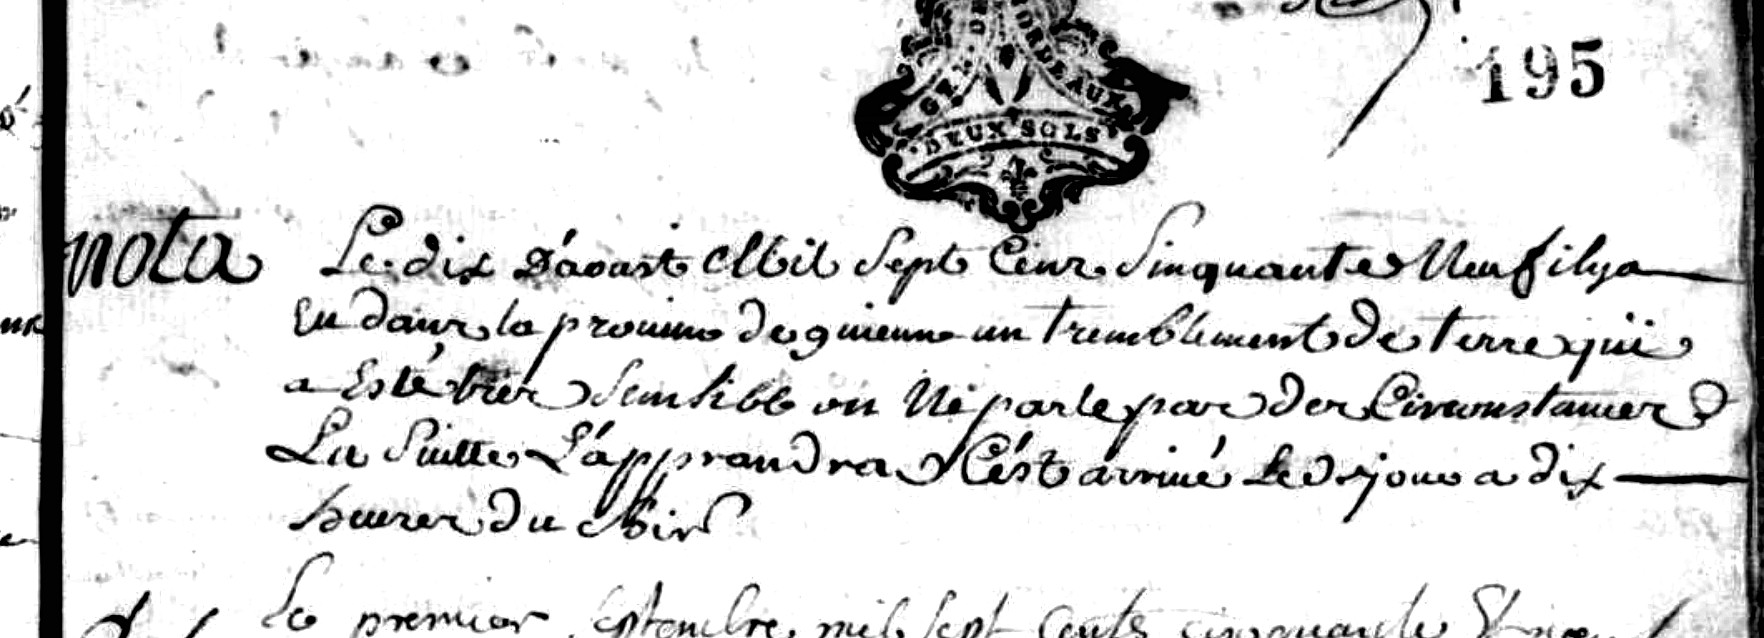 GEN. DE BORDEAUX
DEUX SOLS
195
nota Le dix D'aoust Mil Sept Cens Sinquante Neuf ilya
Eu dans la province de guienne un tremblement de terre qui
a Esté bien sensible on Ne parle pas des Circonstances
La Suitte L'apprandra C'est arrivé Le d. jour a dix
heures du Soir
Le premier septembre mil sept cents cinquante